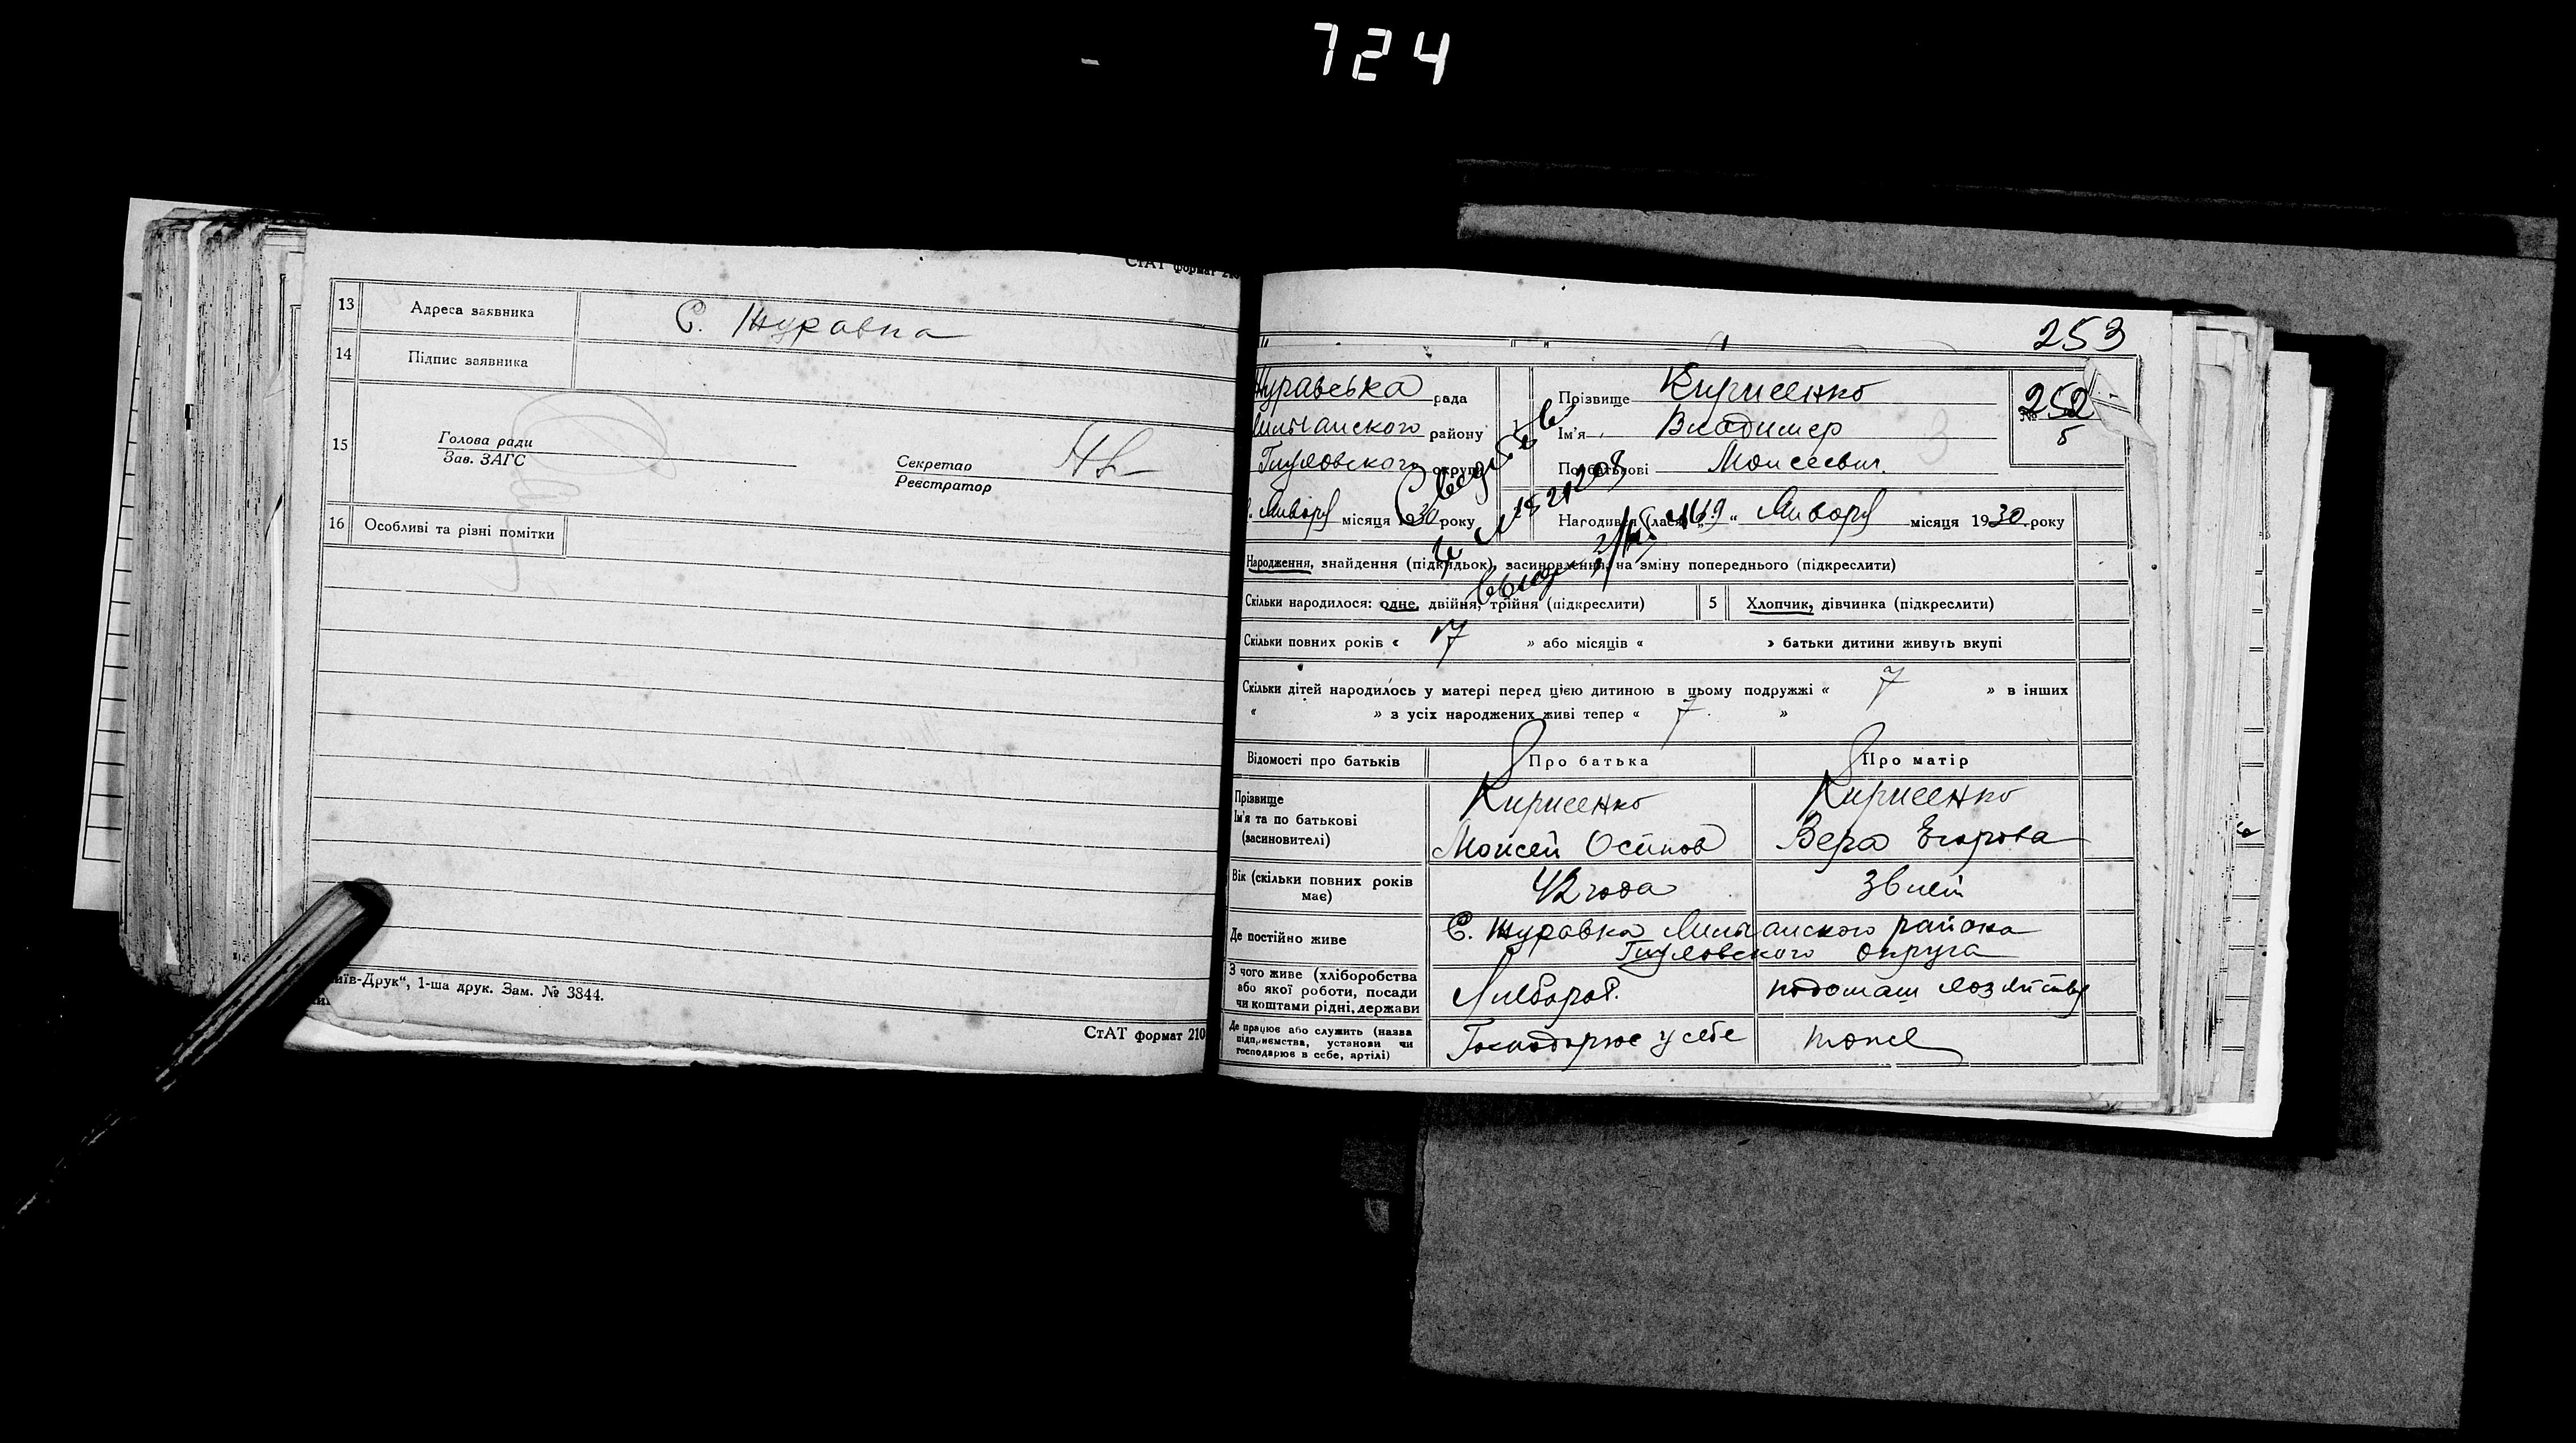 724
СтАТ формат 210
13 Адреса заявника С. Журавка
14 Підпис заявника
15 Голова ради
Зав. ЗАГС
Секретар
Реєстратор
16 Особливі та різні помітки
иїв-Друк“, 1-ша друк. Зам. № 3844.
СтАТ формат 210
253
Журавська рада
району
округи
Января місяця 1930 року
Прізвище Кириенко
Ім'я Владимер
По батькові Моисеевич.
№ 252
5
Народився (лась) „19“ Января місяця 1930 року
Народження, знайдення (підкидьок), засиновлення, на зміну попереднього (підкреслити)
Скільки народилося: одне, двійня, трійня (підкреслити)
5 Хлопчик, дівчинка (підкреслити)
Скільки повних років « 17 » або місяців « » батьки дитини живуть вкупі
Скільки дітей народилось у матері перед цією дитиною в цьому подружжі « 7 » в інших
« » з усіх народжених живі тепер « 7. »
Відомості про батьків Про батька Про матір
Прізвище
Ім'я та по батькові
(засиновителі)
Кириенко
Моисей Осипов
Кириенко
Вера Егорова
Вік (скільки повних років має) 42 года 36 лет
Де постійно живе С. Журавка района
округа
З чого живе (хліборобства або якої роботи, посади чи коштами рідні, держави Хлібороб.
Де працює або служить (назва підприємства, установи чи господарює в себе, артілі) Господарює у себе тоже